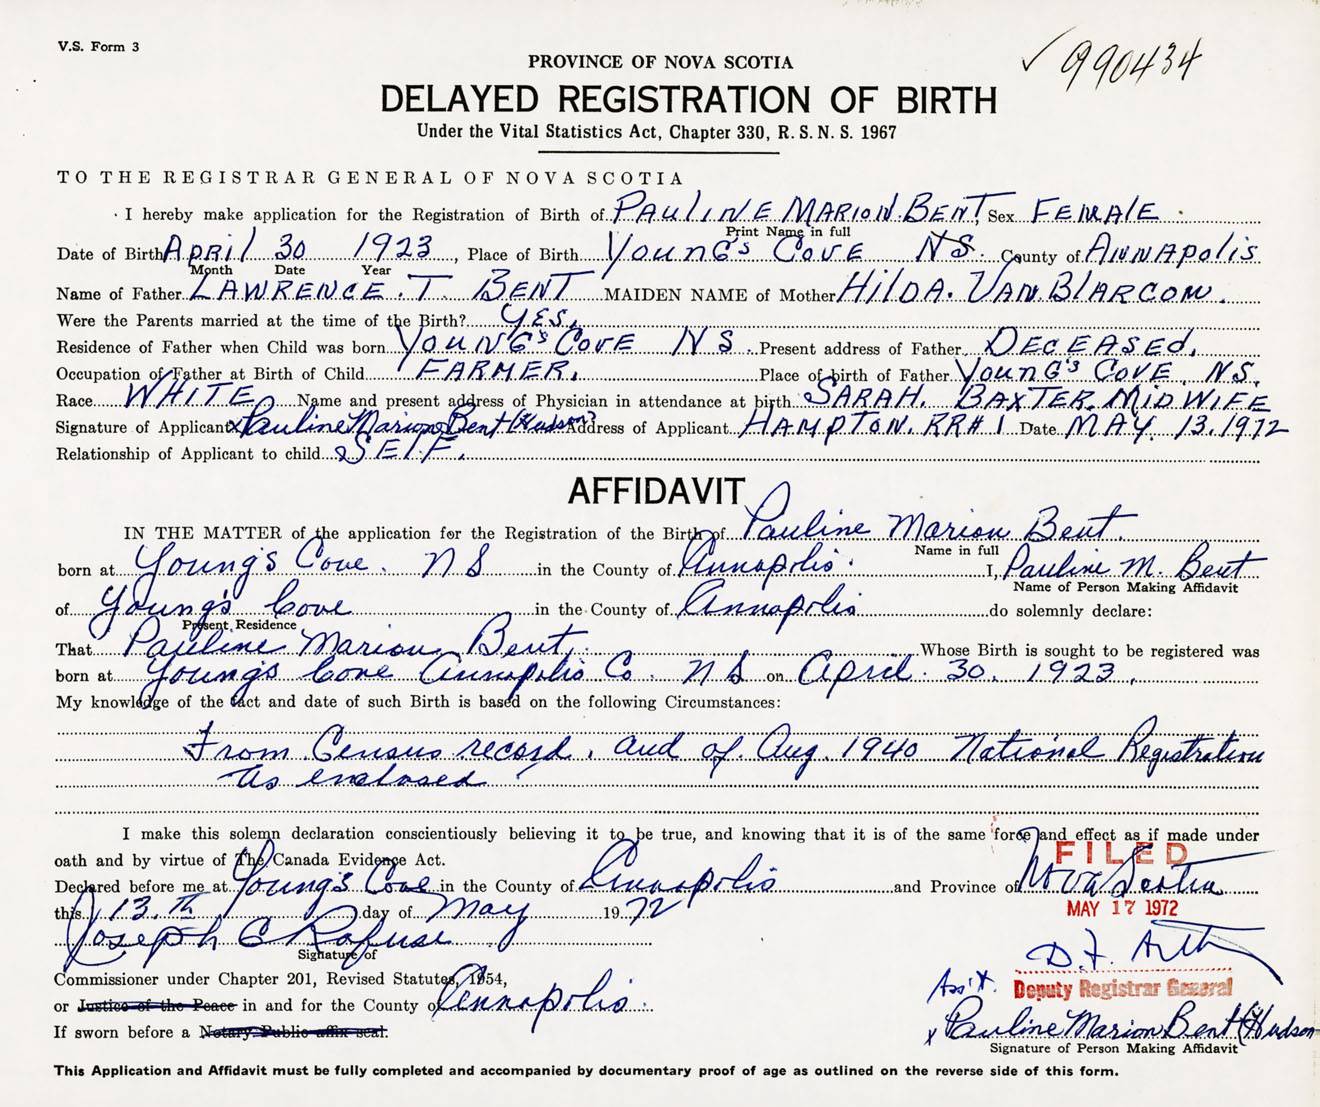 V.S. Form 3
✓ 990434
PROVINCE OF NOVA SCOTIA
DELAYED REGISTRATION OF BIRTH
Under the Vital Statistics Act, Chapter 330, R. S. N. S. 1967
TO THE REGISTRAR GENERAL OF NOVA SCOTIA
I hereby make application for the Registration of Birth of PAULINE MARION BENT, Sex FEMALE
Print Name in full
Date of Birth APRIL 30 1923, Place of Birth YOUNG'S COVE NS. County of ANNAPOLIS
Month Date Year
Name of Father LAWRENCE. T. BENT MAIDEN NAME of Mother HILDA. VAN BLARCOM.
Were the Parents married at the time of the Birth? YES.
Residence of Father when Child was born YOUNG'S COVE NS. Present address of Father DECEASED.
Occupation of Father at Birth of Child FARMER. Place of birth of Father YOUNG'S COVE. NS.
Race WHITE Name and present address of Physician in attendance at birth SARAH. BAXTER. MIDWIFE
Signature of Applicant x Pauline Marion Bent (Hudson) Address of Applicant HAMPTON. RR#1 Date MAY. 13. 1972
Relationship of Applicant to child SELF.
AFFIDAVIT
IN THE MATTER of the application for the Registration of the Birth of Pauline Marion Bent.
Name in full
born at Young's Cove. NS in the County of Annapolis. I, Pauline M. Bent
Name of Person Making Affidavit
of Young's Cove in the County of Annapolis do solemnly declare:
Present Residence
That Pauline Marion Bent, Whose Birth is sought to be registered was
born at Young's Cove Annapolis Co. NS on April. 30. 1923.
My knowledge of the fact and date of such Birth is based on the following Circumstances:
From Census record. and of Aug. 1940 National Registration
As enclosed
I make this solemn declaration conscientiously believing it to be true, and knowing that it is of the same force and effect as if made under
oath and by virtue of The Canada Evidence Act.
FILED
Declared before me at Young's Cove in the County of Annapolis and Province of Nova Scotia
this 13.th day of May 1972
MAY 17 1972
Joseph C Rafuse
Signature of
D.F.
Commissioner under Chapter 201, Revised Statutes, 1954,
Ass't. Deputy Registrar General
or Justice of the Peace in and for the County of Annapolis.
If sworn before a Notary Public affix seal.
x Pauline Marion Bent (Hudson
Signature of Person Making Affidavit
This Application and Affidavit must be fully completed and accompanied by documentary proof of age as outlined on the reverse side of this form.